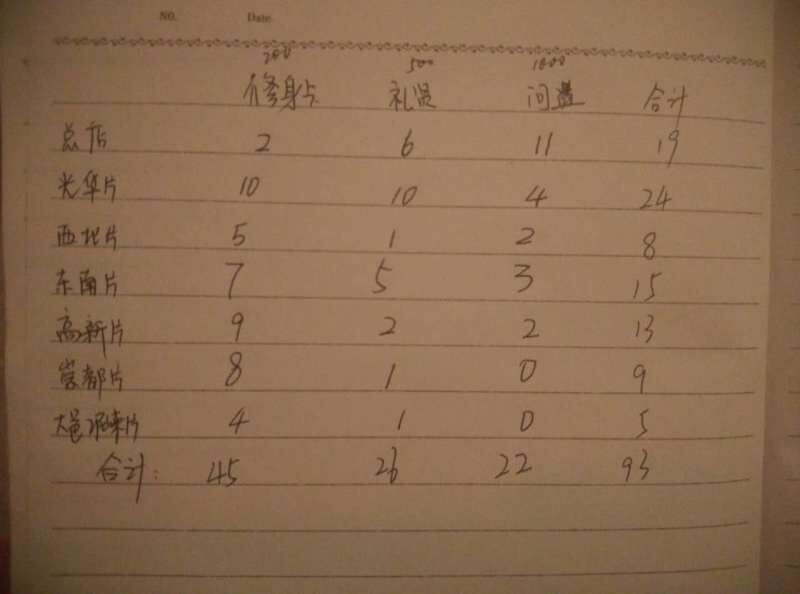 NO. Date
200 500 1000
修身与 礼贤 问道 合计
总店 2 6 11 19
光华片 10 10 4 24
西北片 5 1 2 8
东南片 7 5 3 15
高新片 9 2 2 13
8 1 0 9
大邑邛崃片 4 1 0 5
合计: 45 26 22 93